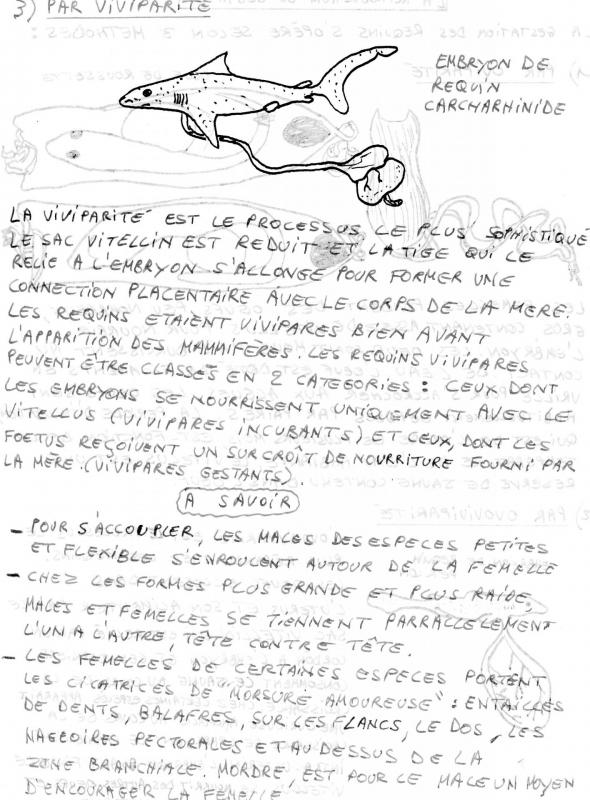 3) PAR VIVIPARITE
EMBRYON DE
REQUIN
CARCHARHINIDE
LA VIVIPARITE EST LE PROCESSUS LE PLUS SOPHISTIQUÉ
LE SAC VITELLIN EST REDUIT ET LA TIGE QUI LE
RELIE A L'EMBRYON S'ALLONGE POUR FORMER UNE
CONNECTION PLACENTAIRE AVEC LE CORPS DE LA MERE.
LES REQUINS ETAIENT VIVIPARES BIEN AVANT
L'APPARITION DES MAMMIFÈRES. LES REQUINS VIVIPARES
PEUVENT ÊTRE CLASSÉS EN 2 CATEGORIES : CEUX DONT
LES EMBRYONS SE NOURRISSENT UNIQUEMENT AVEC LE
VITELLUS (VIVIPARES INCUBANTS) ET CEUX, DONT LES
FOETUS REÇOIVENT UN SURCROÎT DE NOURRITURE FOURNI PAR
LA MÈRE. (VIVIPARES GESTANTS).
A SAVOIR
- POUR S'ACCOUPLER, LES MALES DES ESPECES PETITES
ET FLEXIBLE S'ENROULENT AUTOUR DE LA FEMELLE
- CHEZ LES FORMES PLUS GRANDE ET PLUS RAIDE,
MALES ET FEMELLES SE TIENNENT PARRALLELEMENT
L'UN A L'AUTRE, TÊTE CONTRE TÊTE.
- LES FEMELLES DE CERTAINES ESPECES PORTENT
LES CICATRICES DE "MORSURE AMOUREUSE" : ENTAILLES
DE DENTS, BALAFRES, SUR LES FLANCS, LE DOS, LES
NAGEOIRES PECTORALES ET AU DESSUS DE LA
ZONE BRANCHIALE. MORDRE, EST POUR LE MALE UN MOYEN
D'ENCOURAGER LA FEMELLE